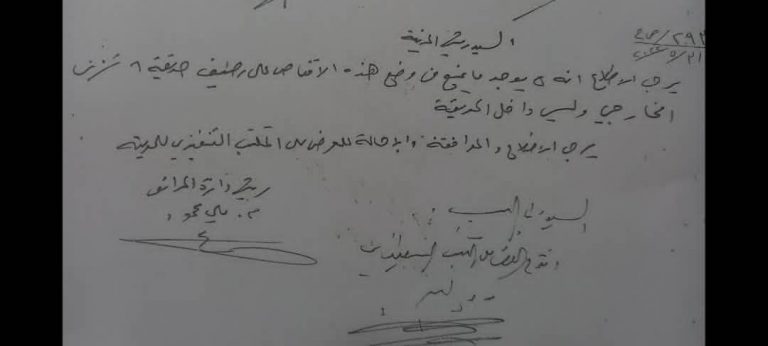 ٢٩٢/ص ع
السيد رئيس المدينة
٢٠٢٢/٥/٣١
يرجى الاطلاع انه لا يوجد ما يمنع من وضع هذه الاقفاص على رصيف حديقة ٦ تشرين
الخارجي وليس داخل الحديقة
يرجى الاطلاع والموافقة والإحالة للعرض على المكتب التنفيذي للمدينة
رئيس دائرة الحدائق
م. علي محمود
السيد
العرض على المكتب التنفيذي